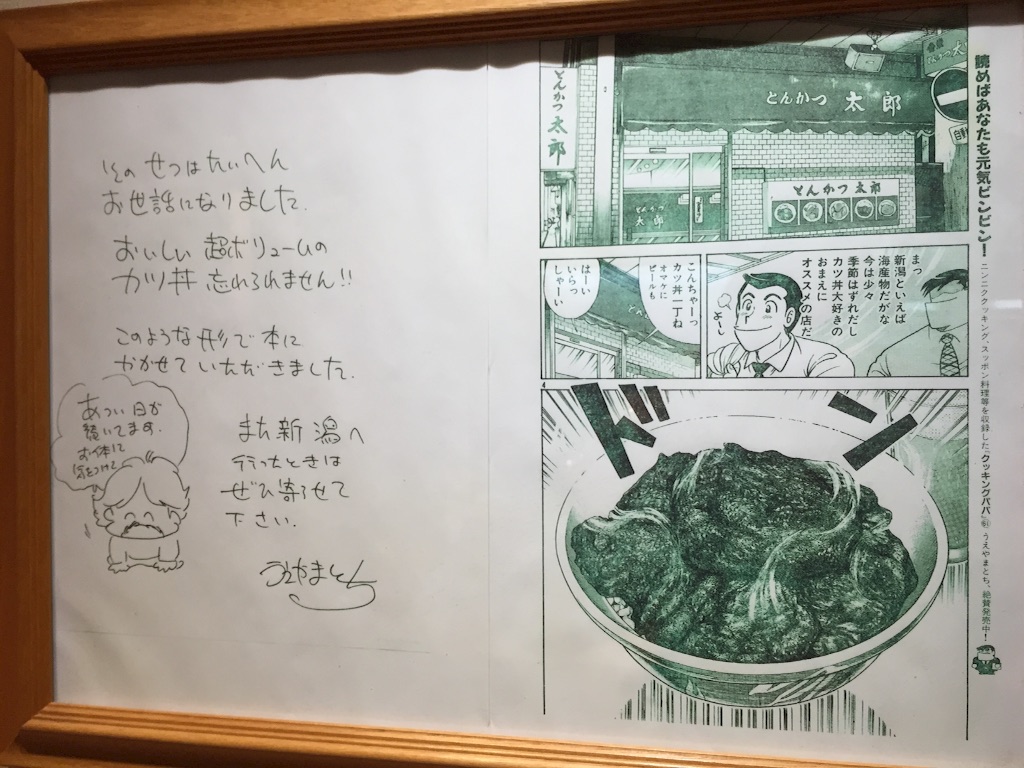 そのせつはたいへん
お世話になりました.
おいしい 超ボリュームの
カツ丼 忘れられません!!
このような形で本に
かかせていただきました.
あつい日が
続いてます.
お体に
気をつけて
また新潟へ
行ったときは
ぜひ寄らせて
下さい.
うえやまとち
とんかつ 太郎
とんかつ 太郎
とんかつ 太郎
太郎
まっ
新潟といえば
海産物だがな
今は少々
季節はずれだし
カツ丼大好きの
おまえに
オススメの店だ
よ〜し
こんちゃーっ
カツ丼一丁ね
オマケに
ビールも
はーい
いらっ
しゃーい
ドン
読めばあなたも元気ビンビン!
ニンニククッキング、スッポン料理等を収録した、クッキングパパ うえやまとち、絶賛発売中!